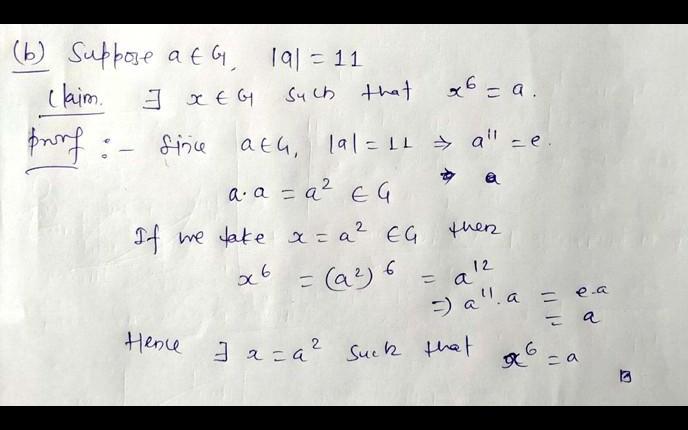 (b) Suppose a ∈ G, |a| = 11
Claim. ∃ x ∈ G such that x⁶ = a.
Proof :- Since a ∈ G, |a| = 11 ⇒ a¹¹ = e.
a·a = a² ∈ G
If we take x = a² ∈ G then
x⁶ = (a²)⁶ = a¹²
⇒ a¹¹.a = e.a
= a
Hence ∃ x = a² such that x⁶ = a